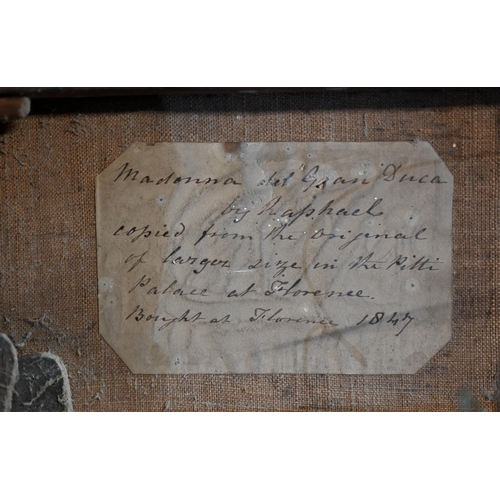 Madonna del Gran Duca
by Raphael
copied from the original
of larger size in the Pitti
Palace at Florence.
Bought at Florence 1847